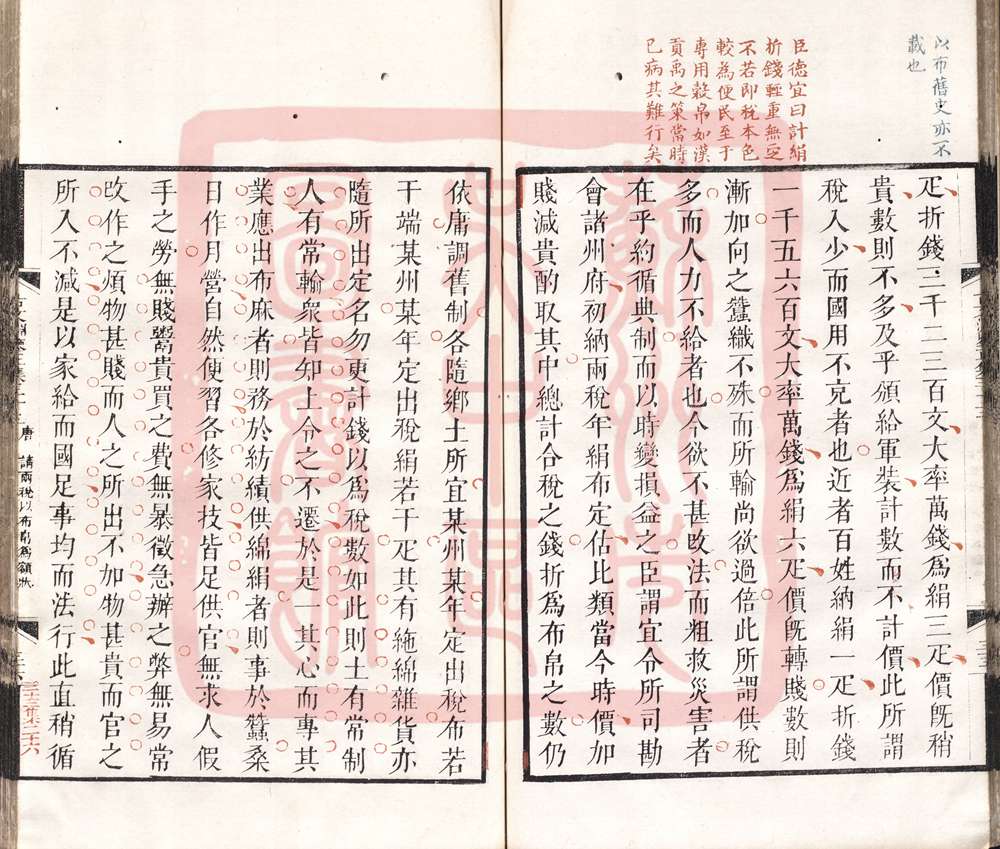 以布舊史亦不
載也
臣德宜曰計絹
折錢輕重無定
不若即稅本色
較為便民至于
專用穀帛如漢
貢禹之策當時
已病其難行矣
疋折錢三千二三百文大率萬錢爲絹三疋價旣稍
貴數則不多及乎頒給軍裝計數而不計價此所謂
稅入少而國用不克者也近者百姓納絹一疋折錢
一千五六百文大率萬錢爲絹六疋價旣轉賤數則
漸加向之蠶織不殊而所輸尚欲過倍此所謂供稅
多而人力不給者也今欲不甚改法而粗救災害者
在乎約循典制而以時變損益之臣謂宜令所司勘
會諸州府初納兩稅年絹布定估比類當今時價加
賤減貴酌取其中總計合稅之錢折爲布帛之數仍
依庸調舊制各隨鄉土所宜某州某年定出稅布若
干端某州某年定出稅絹若干疋其有絁綿雜貨亦
隨所出定名勿更計錢以爲稅數如此則土有常制
人有常輸衆皆知上令之不遷於是一其心而專其
業應出布麻者則務於紡績供綿絹者則事於蠶桑
日作月營自然便習各修家技皆足供官無求人假
手之勞無賤鬻貴買之費無暴徵急辦之弊無易常
改作之煩物甚賤而人之所出不加物甚貴而官之
所入不減是以家給而國足事均而法行此直稍循
唐 請兩稅以布帛爲額狀